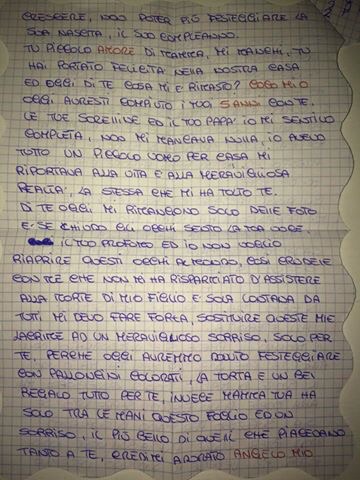 CRESCERE, NON POTER PIÙ FESTEGGIARE LA
SUA NASCITA, IL SUO COMPLEANNO.
TU PICCOLO AMORE DI MAMMA, MI MANCHI, TU
HAI PORTATO FELICITÀ NELLA NOSTRA CASA
ED OGGI DI TE COSA MI È RIMASTO? COCO MIO
OGGI AVRESTI COMPIUTO I TUOI 5 ANNI CON TE.
LE TUE SORELLINE ED IL TUO PAPA' IO MI SENTIVO
COMPLETA, NON MI MANCAVA NULLA, IO AVEVO
TUTTO UN PICCOLO UOMO PER CASA MI
RIPORTAVA ALLA VITA E ALLA MERAVIGLIOSA
REALTA', LA STESSA CHE MI HA TOLTO TE.
DI TE OGGI MI RIMANGONO SOLO DELLE FOTO
E SE CHIUDO GLI OCCHI SENTO LA TUA VOCE.
IL TUO PROFUMO ED IO NON VOGLIO
RIAPRIRE QUESTI OCCHI AL MONDO, COSÌ CRUDELE
CON ME CHE NON MI HA RISPARMIATO D'ASSISTERE
ALLA MORTE DI MIO FIGLIO E SOLA LONTANA DA
TUTTI. MI DEVO FARE FORZA, SOSTITUIRE QUESTE MIE
LACRIME AD UN MERAVIGLIOSO SORRISO, SOLO PER
TE, PERCHÈ OGGI AVREMMO DOVUTO FESTEGGIARE
CON PALLONCINI COLORATI, LA TORTA E UN BEL
REGALO TUTTO PER TE, INVECE MAMMA TUA HA
SOLO TRA LE MANI QUESTO FOGLIO ED UN
SORRISO, IL PIÙ BELLO DI QUELLI CHE PIACEVANO
TANTO A TE, CREDIMI ADORATO ANGELO MIO